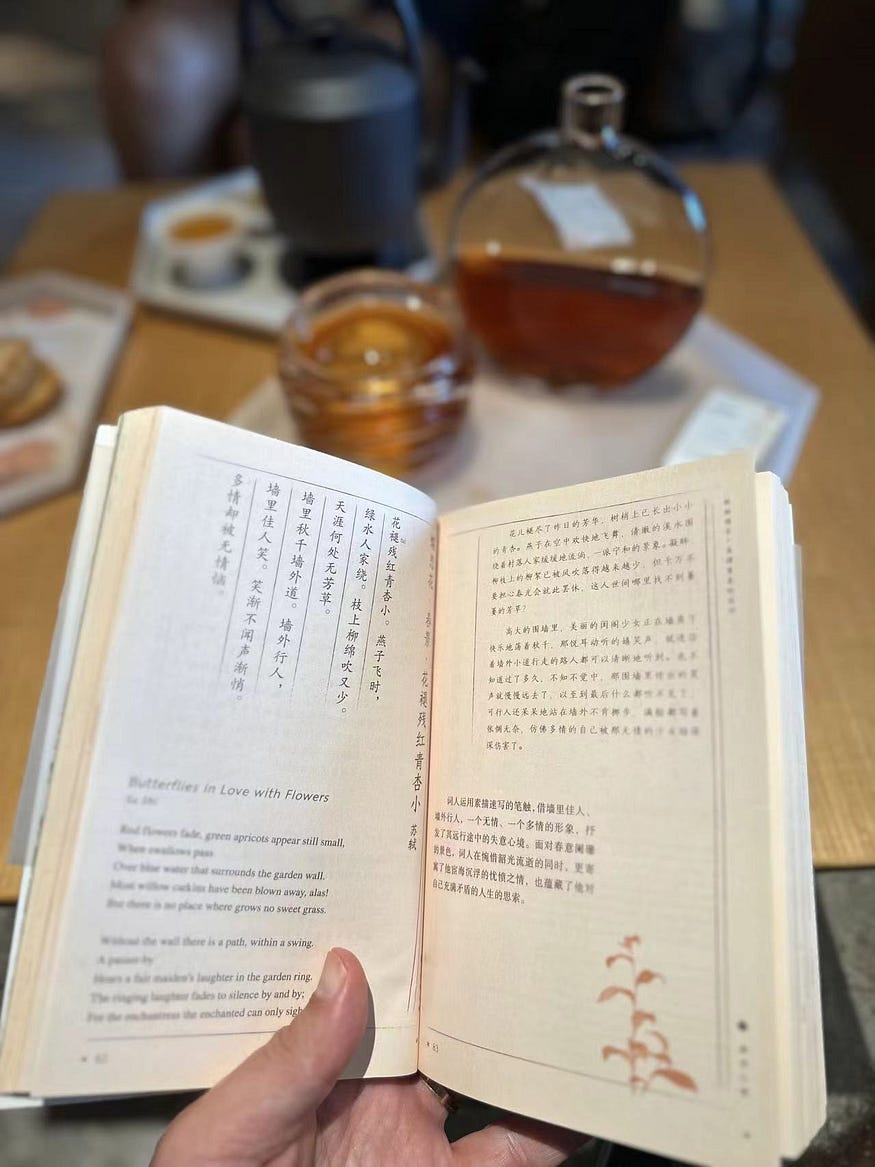 蝶恋花·春景·花褪残红青杏小 苏轼
花褪残红青杏小。燕子飞时，
绿水人家绕。枝上柳绵吹又少。
天涯何处无芳草。
墙里秋千墙外道。墙外行人，
墙里佳人笑。笑渐不闻声渐悄。
多情却被无情恼。
Butterflies in Love with Flowers
Su Shi
Red flowers fade, green apricots appear still small,
When swallows pass
Over blue water that surrounds the garden wall.
Most willow catkins have been blown away, alas!
But there is no place where grows no sweet grass.
Without the wall there is a path, within a swing.
A passer-by
Hears a fair maiden's laughter in the garden ring.
The ringing laughter fades to silence by and by;
For the enchantress the enchanted can only sigh
62
花儿褪尽了昨日的芳华，树梢上已长出小小
的青杏。燕子在空中欢快地飞舞，清澈的溪水围
绕着村落人家缓缓地流淌，一派宁和的景象。凝眸
柳枝上的柳絮已被风吹落得越来越少，但千万不
要担心春光会就此罢休，这人世间哪里找不到萋
萋的芳草？
高大的围墙里，美丽的闺阁少女正在墙角下
快乐地荡着秋千，那悦耳动听的嬉笑声，就连沿
着墙外小道行走的路人都可以清晰地听到。也不
知道过了多久，不知不觉中，那围墙里传出的笑
声就慢慢远去了，以至到最后什么都听不见了，
可行人还呆呆地站在墙外不肯挪步，满脸都写着
怅惘无奈，仿佛多情的自己被那无情的少女给深
深伤害了。
词人运用素描速写的笔触，借墙里佳人、
墙外行人，一个无情、一个多情的形象，抒
发了其远行途中的失意心境。面对春意阑珊
的景色，词人在惋惜韶光流逝的同时，更寄
寓了他宦海沉浮的忧愤之情，也蕴藏了他对
自己充满矛盾的人生的思索。
63